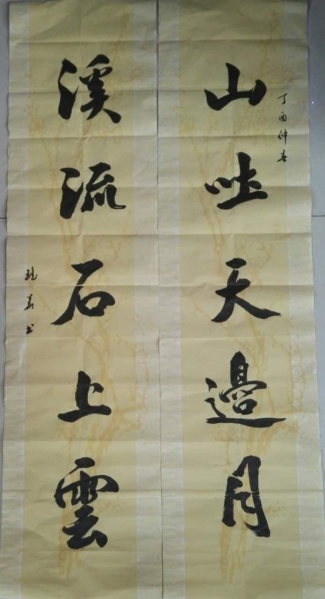 丁酉仲春
山吐天邊月
溪流石上雲